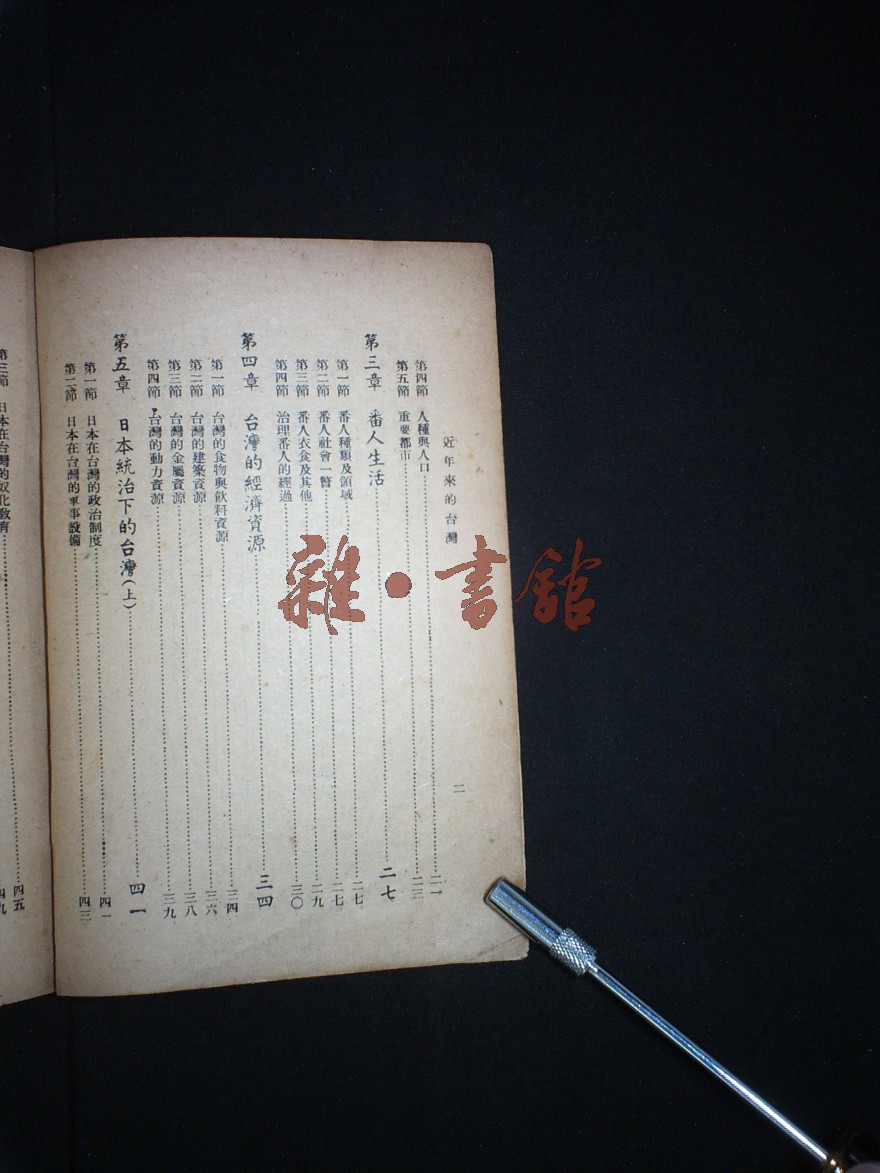 近年來的台灣
二
第四節 人種與人口 二一
第五節 重要都市 二三
第三章 番人生活 二七
第一節 番人種類及領域 二七
第二節 番人社會一瞥 二七
第三節 番人衣食及其他 二九
第四節 治理番人的經過 三〇
第四章 台灣的經濟資源 三四
第一節 台灣的食物與飲料資源 三四
第二節 台灣的建築資源 三六
第三節 台灣的金屬資源 三八
第四節 台灣的動力資源 三九
第五章 日本統治下的台灣(上) 四一
第一節 日本在台灣的政治制度 四一
第二節 日本在台灣的軍事設備 四三
第三節 日本在台灣的奴化教育 四五
四九
雜·書館